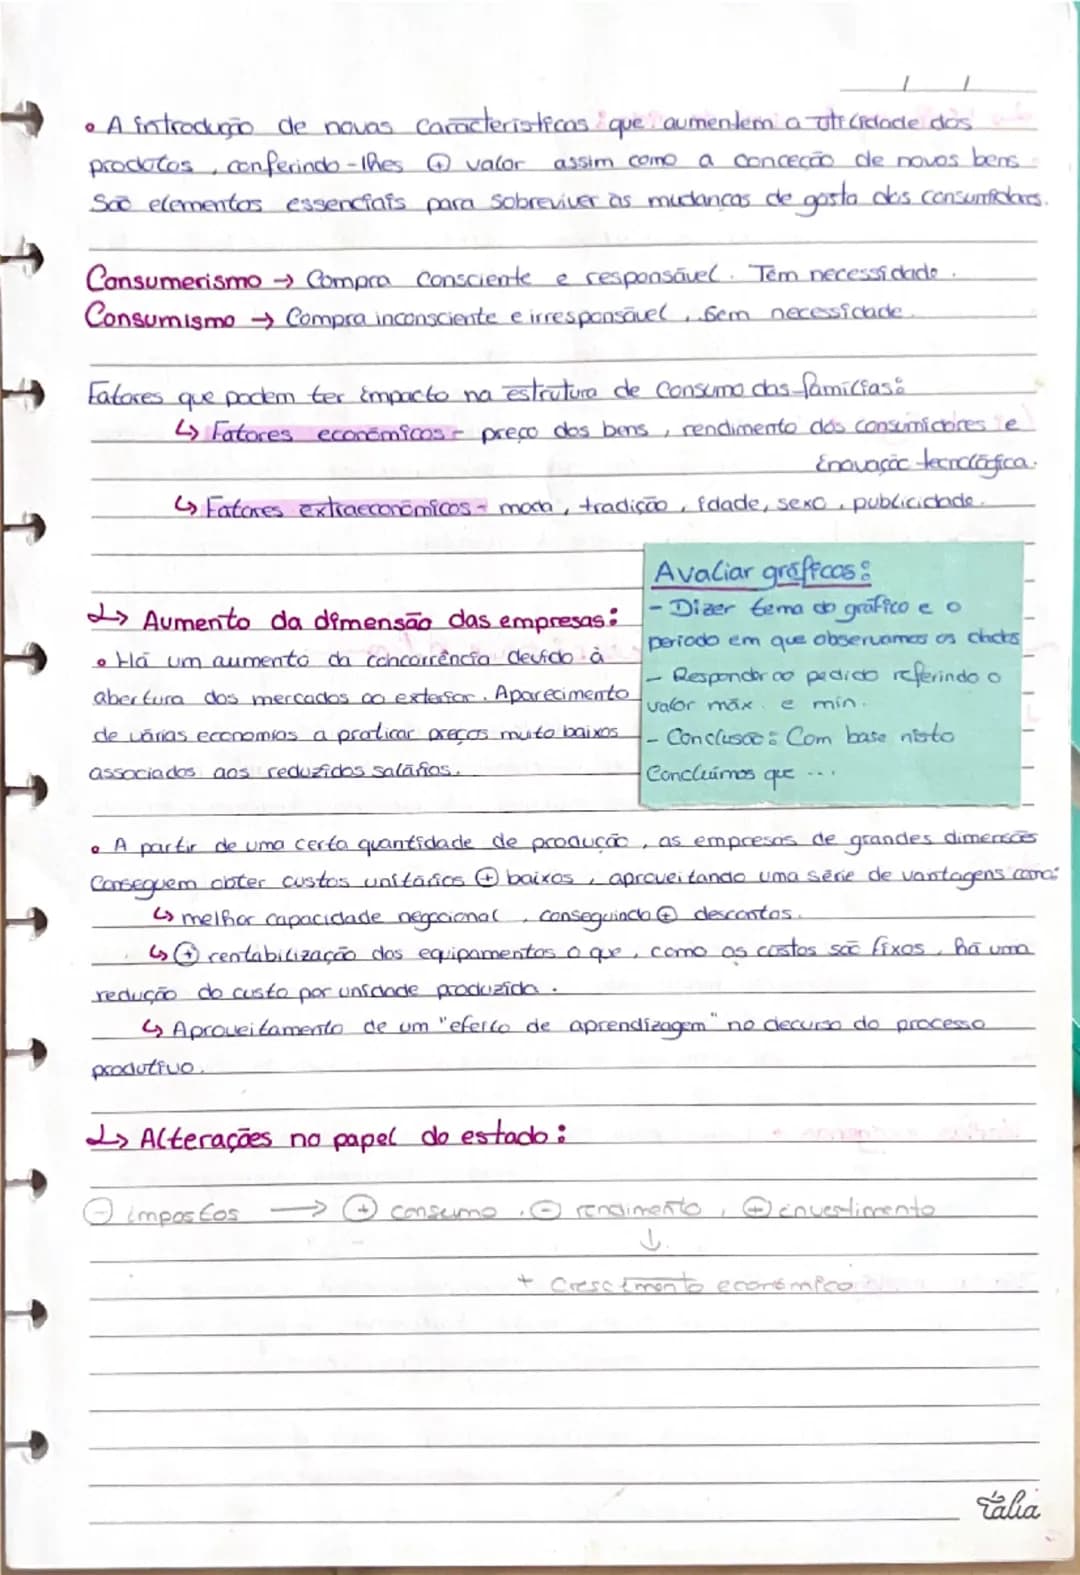 • A introdução de novas características que aumentem a utilidade dos
produtos, conferindo-lhes ⊕ valor assim como a conceção de novos bens
São elementos essenciais para sobreviver às mudanças de gosto dos consumidores.
Consumerismo → Compra consciente e responsável. Têm necessidade.
Consumismo → Compra inconsciente e irresponsável, sem necessidade.
Fatores que podem ter impacto na estrutura de consumo das famílias:
↳ Fatores económicos - preço dos bens, rendimento dos consumidores e
inovação tecnológica.
↳ Fatores extraeconómicos - moda, tradição, idade, sexo, publicidade.
↳ Aumento da dimensão das empresas:
• Há um aumento da concorrência devido à
abertura dos mercados ao exterior. Aparecimento
de várias economias a praticar preços muito baixos
associados aos reduzidos salários.
Avaliar gráficos:
- Dizer tema do gráfico e o
período em que observamos os dados
- Responder ao pedido referindo o
valor máx. e mín.
- Conclusão: Com base nisto
Concluímos que ...
• A partir de uma certa quantidade de produção, as empresas de grandes dimensões
Conseguem obter custos unitários ⊕ baixos, aproveitando uma série de vantagens como:
↳ melhor capacidade negocional, conseguindo ⊕ descontos.
↳ ⊕ rentabilização dos equipamentos o que, como os custos são fixos, há uma
redução do custo por unidade produzida.
↳ Aproveitamento de um "efeito de aprendizagem" no decurso do processo
produtivo.
↳ Alterações no papel do estado:
⊖ impostos → ⊕ consumo, ⊖ rendimento, ⊕ investimento
↓
+ Crescimento económico
Tália